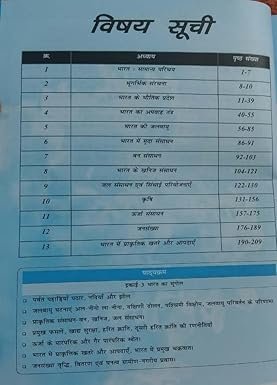 विषय सूची
क्र. अध्याय पृष्ठ संख्या
1 भारत : सामान्य परिचय 1-7
2 भूगर्भिक संरचना 8-10
3 भारत के भौतिक प्रदेश 11-39
4 भारत का अपवाह तंत्र 40-55
5 भारत की जलवायु 56-85
6 भारत में मृदा संसाधन 86-91
7 वन संसाधन 92-103
8 भारत के खनिज संसाधन 104-121
9 जल संसाधन एवं सिंचाई परियोजनाएँ 122-130
10 कृषि 131-156
11 ऊर्जा संसाधन 157-175
12 जनसंख्या 176-189
13 भारत में प्राकृतिक खतरे और आपदाएँ 190-209
पाठ्यक्रम
इकाई-3 भारत का भूगोल
पर्वत पहाड़ियां पठार, नदियाँ और झीलें
जलवायु घटनाएं अल नीनो ला नीना, दक्षिणी दोलन, पश्चिमी विक्षोभ, जलवायु परिवर्तन के परिणाम
प्राकृतिक संसाधन-वन, खनिज, जल संसाधन
प्रमुख फसलें, खाद्य सुरक्षा, हरित क्रांति, दूसरी हरित क्रांति की रणनीतियाँ
ऊर्जा के पारंपरिक और गैर पारंपरिक स्रोत।
भारत में प्राकृतिक खतरे और आपदाएँ, भारत में प्रमुख चक्रवात।
जनसंख्या वृद्धि, वितरण एवं घनत्व ग्रामीण-नगरीय प्रवास।